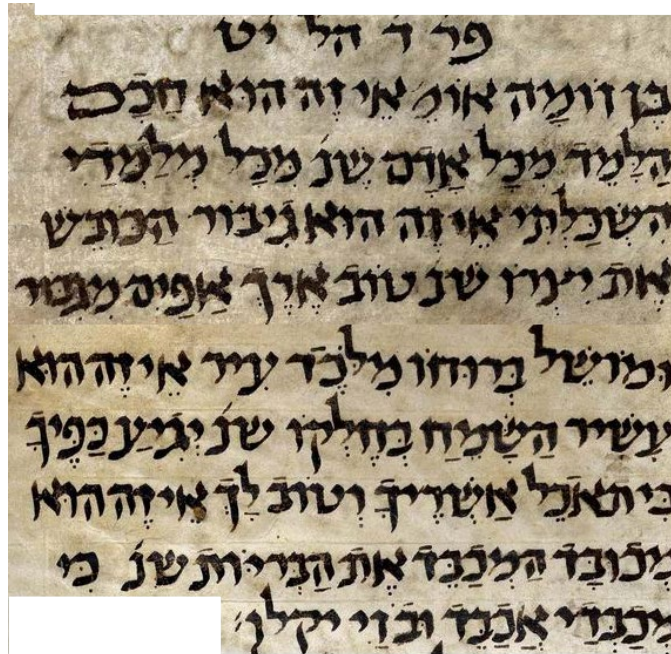 פר ד הל יט
בן זומה אומ' אי זה הוא חכם
הלמד מכל אדם שנ' מכל מלמדי
השכלתי אי זה הוא גיבור הכובש
את יצרו שנ' טוב ארך אפים מגבור
ומושל ברוחו מלכד עיר אי זה הוא
עשיר השמח בחלקו שנ' יגיע כפיך
כי תאכל אשריך וטוב לך אי זה הוא
מכובד המכבד את הבריות שנ' כי
מכבדי אכבד ובזי יקלו